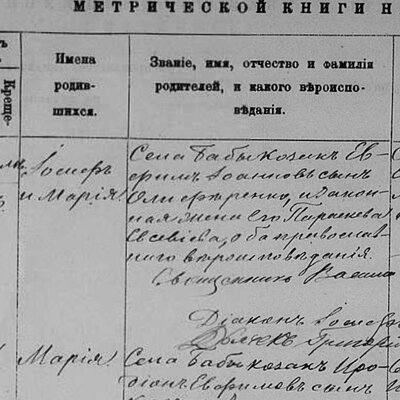 МЕТРИЧЕСКОЙ КНИГИ Н
Креще-
Имена
родив-
шихся.
Званіе, имя, отчество и фамилія
родителей, и какого вѣроиспо-
вѣданія.
Іосифъ
и Марія
Села Бабы козакъ Ев-
фимъ Іоанновъ сынъ
и закон-
ная жена его Параскева
Евсевіева, оба православ-
наго вѣроисповѣданія.
Священникъ
Діаконъ Іосиф
Григорій
Марія
Села Бабы козакъ Иро-
діонъ Евфимовъ сынъ